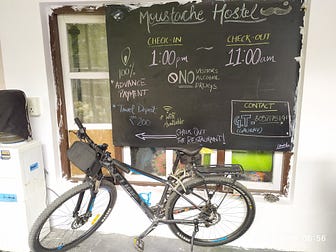 Moustache Hostel
CHECK-IN
1:00pm
~
CHECK-OUT
11:00am
100%
ADVANCE
PAYMENT
NO
VISITORS
ALCOHOL
DRUGS
Towel Deposit
200
WiFi
Available
CHECK OUT
THE RESTAURANT!
CONTACT